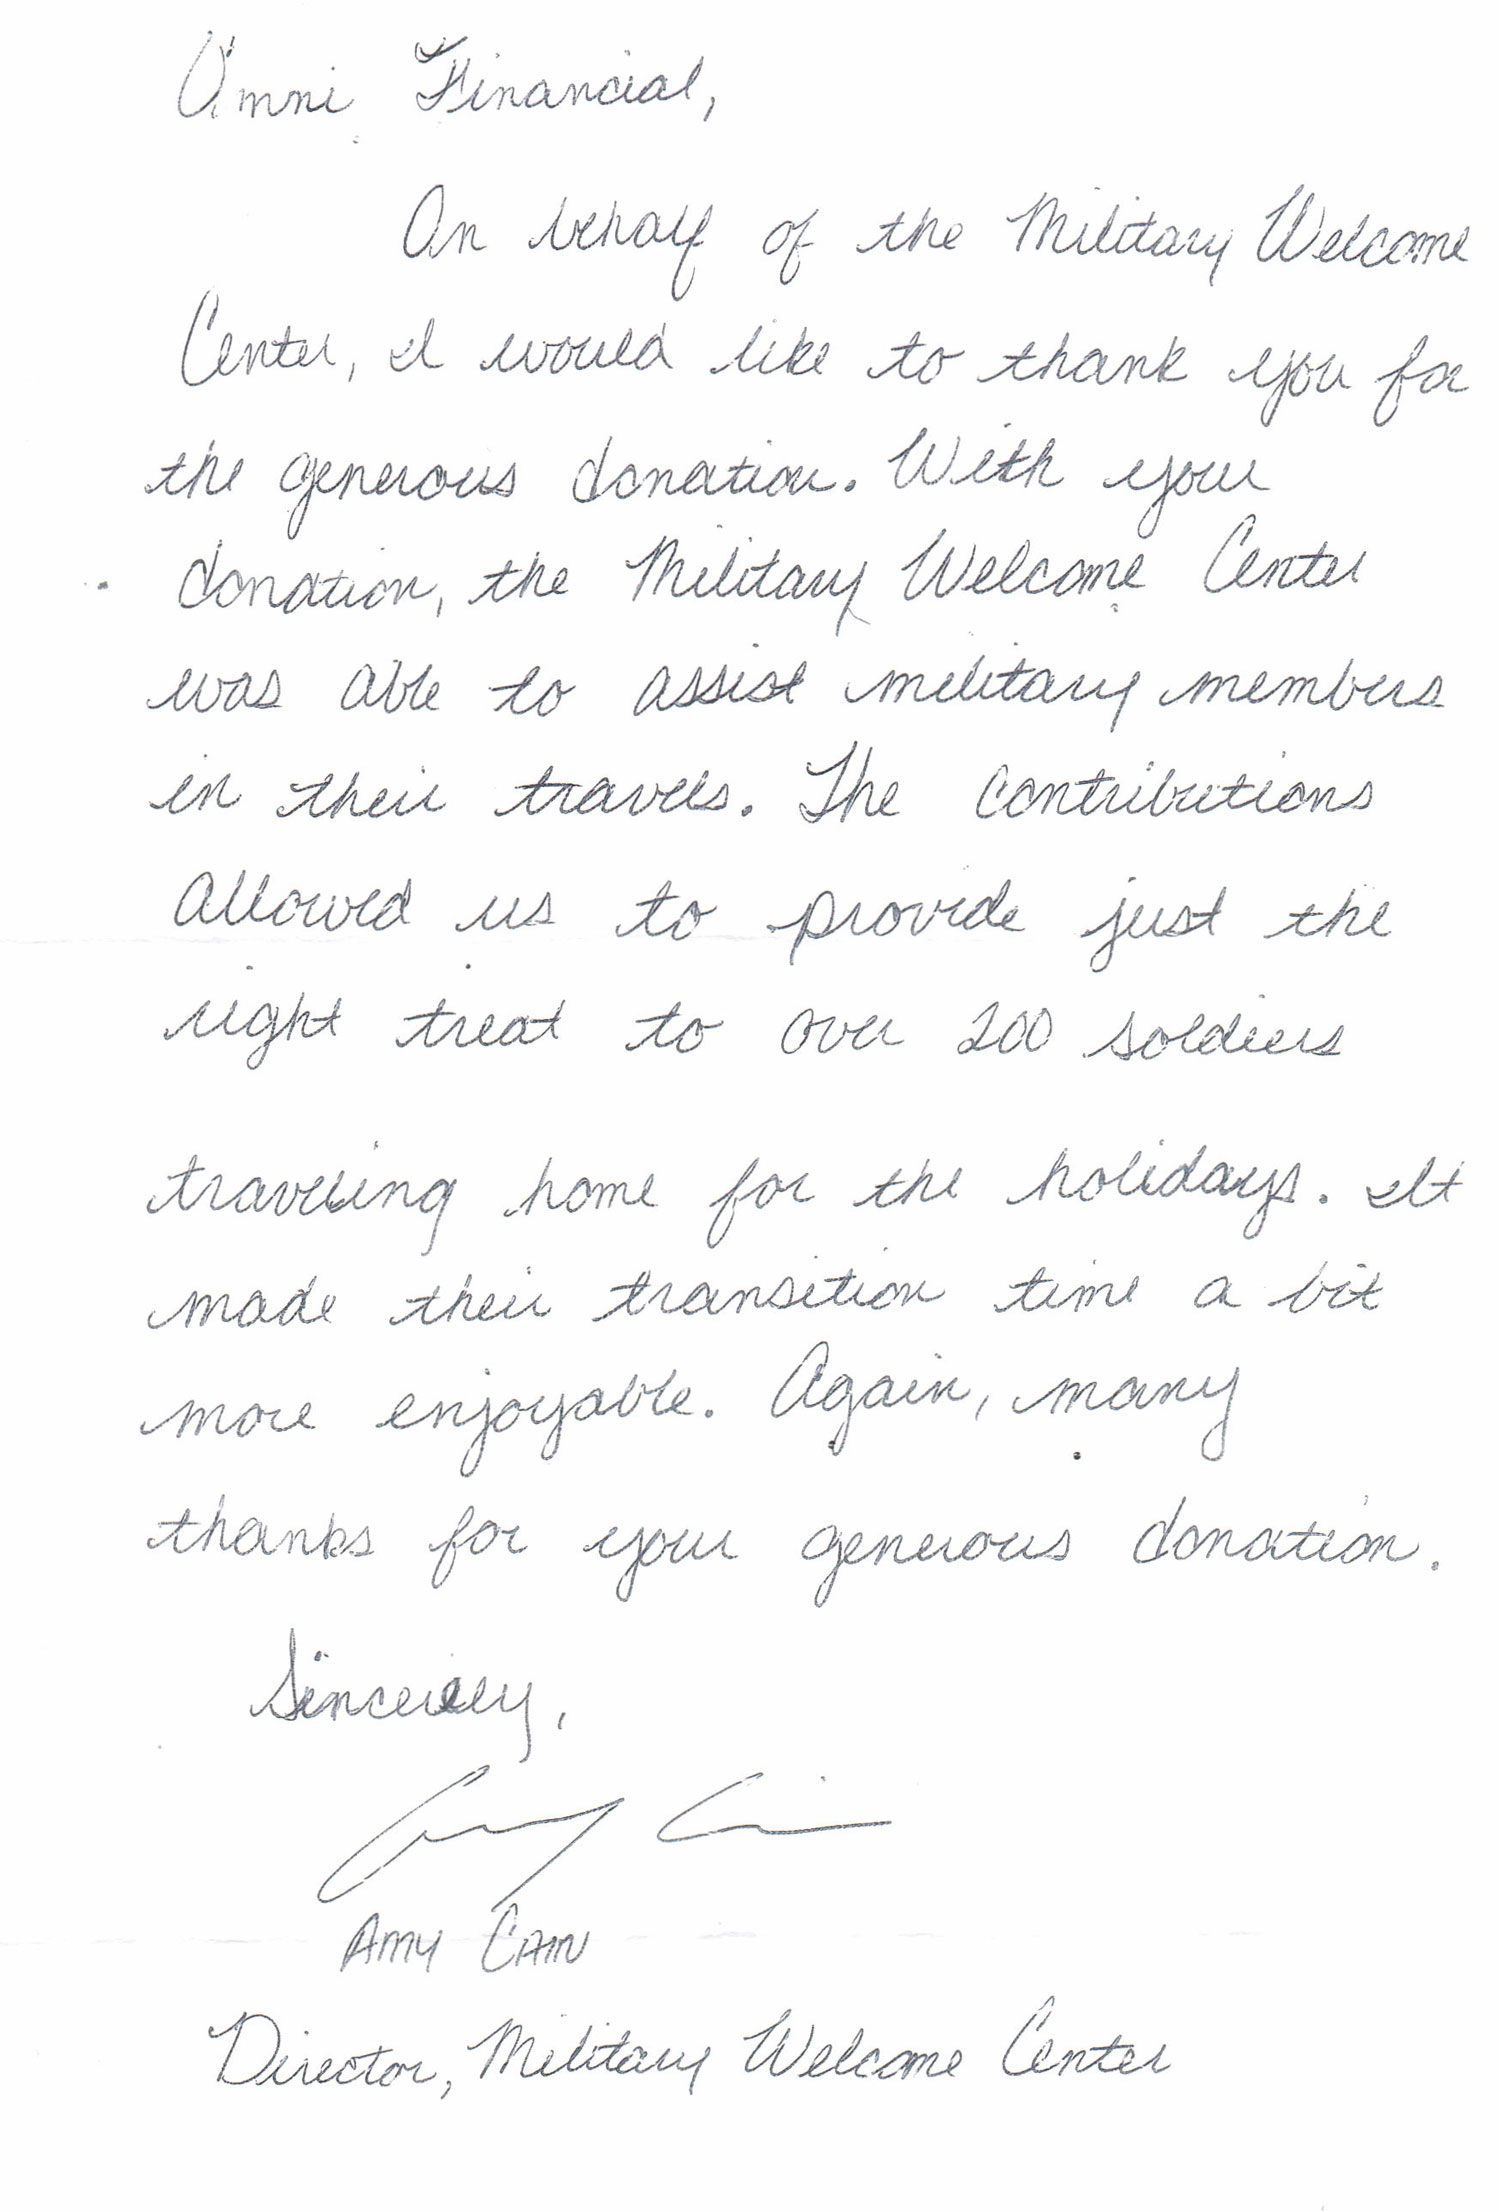 Omni Financial,
On behalf of the Military Welcome
Center, I would like to thank you for
the generous donation. With your
donation, the Military Welcome Center
was able to assist military members
in their travels. The contributions
allowed us to provide just the
right treat to over 200 soldiers
traveling home for the holidays. It
made their transition time a bit
more enjoyable. Again, many
thanks for your generous donation.
Sincerely,
Amy Cain
Amy Cain
Director, Military Welcome Center